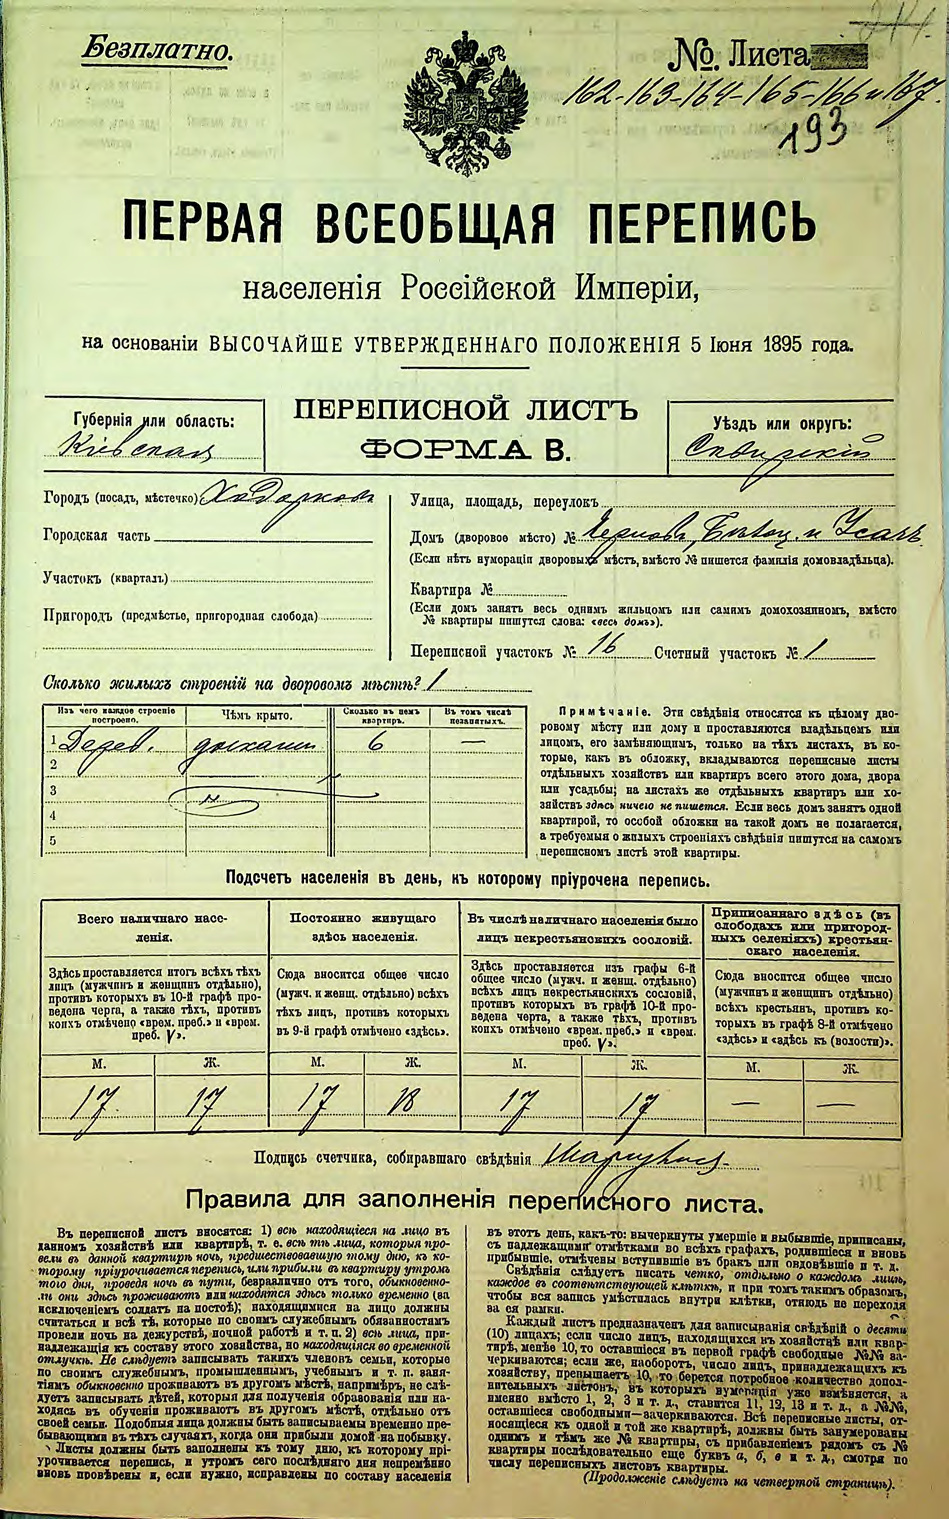 Безплатно.
№. Листа
162-163-164-165-166 и 167.
193
ПЕРВАЯ ВСЕОБЩАЯ ПЕРЕПИСЬ
населенія Россійской Имперіи,
на основаніи ВЫСОЧАЙШЕ УТВЕРЖДЕННАГО ПОЛОЖЕНІЯ 5 Іюня 1895 года.
Губернія или область:
Кіевская
ПЕРЕПИСНОЙ ЛИСТЪ
ФОРМА В.
Уѣздъ или округъ:
Сквирскій
Городъ (посадъ, мѣстечко) Ходорков
Городская часть
Участокъ (кварталъ)
Пригородъ (предмѣстье, пригородная слобода)
Улица, площадь, переулокъ
Домъ (дворовое мѣсто) №
(Если нѣтъ нумораціи дворовыхъ мѣстъ, вмѣсто № пишется фамилія домовладѣльца).
Квартира №
(Если домъ занятъ весь однимъ жильцомъ или самимъ домохозяиномъ, вмѣсто
№ квартиры пишутся слова: «весь домъ»).
Переписной участокъ № 16 Счетный участокъ № 1
Сколько жилыхъ строеній на дворовомъ мѣстѣ? 1
Изъ чего каждое строеніе построено.
Чѣмъ крыто.
Сколько въ немъ квартиръ.
Въ томъ числѣ незанятыхъ.
1 Дерев. 6 —
2
3
4
5
Примѣчаніе. Эти свѣдѣнія относятся къ цѣлому дво-
ровому мѣсту или дому и проставляются владѣльцемъ или
лицомъ, его замѣняющимъ, только на тѣхъ листахъ, въ ко-
торые, какъ въ обложку, вкладываются переписные листы
отдѣльныхъ хозяйствъ или квартиръ всего этого дома, двора
или усадьбы; на листахъ же отдѣльныхъ квартиръ или хо-
зяйствъ здѣсь ничего не пишется. Если весь домъ занятъ одной
квартирой, то особой обложки на такой домъ не полагается,
а требуемыя о жилыхъ строеніяхъ свѣдѣнія пишутся на самомъ
переписномъ листѣ этой квартиры.
Подсчетъ населенія въ день, къ которому пріурочена перепись.
Всего наличнаго насе-
ленія.
Здѣсь проставляется итогъ всѣхъ тѣхъ
лицъ (мужчинъ и женщинъ отдѣльно),
противъ которыхъ въ 10-й графѣ про-
ведена черта, а также тѣхъ, противъ
коихъ отмѣчено «врем. преб.» и «врем.
преб. V».
Постоянно живущаго
здѣсь населенія.
Сюда вносится общее число
(мужч. и женщ. отдѣльно) всѣхъ
тѣхъ лицъ, противъ которыхъ
въ 9-й графѣ отмѣчено «здѣсь».
Въ числѣ наличнаго населенія было
лицъ некрестьянскихъ сословій.
Здѣсь проставляется изъ графы 6-й
общее число (мужч. и женщ. отдѣльно)
всѣхъ лицъ некрестьянскихъ сословій,
противъ которыхъ въ графѣ 10-й про-
ведена черта, а также тѣхъ, противъ
коихъ отмѣчено «врем. преб.» и «врем.
преб. V».
Приписаннаго здѣсь (въ
слободахъ или пригород-
ныхъ селеніяхъ) крестьян-
скаго населенія.
Сюда вносится общее число
(мужчинъ и женщинъ отдѣльно)
всѣхъ крестьянъ, противъ ко-
торыхъ въ графѣ 8-й отмѣчено
«здѣсь» и «здѣсь къ (волости)».
М. Ж. М. Ж. М. Ж. М. Ж.
17. 17 17 18 17 17 — —
Подпись счетчика, собиравшаго свѣдѣнія
Правила для заполненія переписного листа.
Въ переписной листъ вносятся: 1) всѣ находящіеся на лицо въ
данномъ хозяйствѣ или квартирѣ, т. е. всѣ тѣ лица, которыя про-
вели въ данной квартирѣ ночь, предшествовавшую тому дню, къ ко-
торому пріурочивается перепись, или прибыли въ квартиру утромъ
того дня, проведя ночь въ пути, безразлично отъ того, обыкновенно-
ли они здѣсь проживаютъ или находятся здѣсь только временно (за
исключеніемъ солдатъ на постоѣ); находящимися на лицо должны
считаться и всѣ тѣ, которые по своимъ служебнымъ обязанностямъ
провели ночь на дежурствѣ, ночной работѣ и т. п. 2) всѣ лица, при-
надлежащія къ составу этого хозяйства, но находящіяся во временной
отлучкѣ. Не слѣдуетъ записывать такихъ членовъ семьи, которые
по своимъ служебнымъ, промышленнымъ, учебнымъ и т. п. заня-
тіямъ обыкновенно проживаютъ въ другомъ мѣстѣ, напримѣръ, не слѣ-
дуетъ записывать дѣтей, которыя для полученія образованія или на-
ходясь въ обученіи проживаютъ въ другомъ мѣстѣ, отдѣльно отъ
своей семьи. Подобныя лица должны быть записываемы временно пре-
бывающими въ тѣхъ случаяхъ, когда они прибыли домой на побывку.
Листы должны быть заполнены къ тому дню, къ которому прі-
урочивается перепись, и утромъ сего послѣдняго дня непремѣнно
вновь провѣрены и, если нужно, исправлены по составу населенія
въ этотъ день, какъ-то: вычеркнуты умершіе и выбывшіе, приписаны,
съ надлежащими отмѣтками во всѣхъ графахъ, родившіеся и вновь
прибывшіе, отмѣчены вступившіе въ бракъ или овдовѣвшіе и т. д.
Свѣдѣнія слѣдуетъ писать четко, отдѣльно о каждомъ лицѣ,
каждое въ соотвѣтствующей клѣткѣ, и при томъ такимъ образомъ,
чтобы вся запись умѣстилась внутри клѣтки, отнюдь не переходя
за ея рамки.
Каждый листъ предназначенъ для записыванія свѣдѣній о десяти
(10) лицахъ; если число лицъ, находящихся въ хозяйствѣ или квар-
тирѣ, менѣе 10, то оставшіеся въ первой графѣ свободные №№ за-
черкиваются; если же, наоборотъ, число лицъ, принадлежащихъ къ
хозяйству, превышаетъ 10, то берется потребное количество допол-
нительныхъ листовъ, въ которыхъ нумерація ужо измѣняется, а
именно вмѣсто 1, 2, 3 и т. д., ставится 11, 12, 13 и т. д., а №№,
оставшіеся свободными—зачеркиваются. Всѣ переписные листы, от-
носящіеся къ одной и той же квартирѣ, должны быть занумерованы
однимъ и тѣмъ же № квартиры, съ прибавленіемъ рядомъ съ №
квартиры послѣдовательно еще буквъ а, б, в и т. д., смотря по
числу переписныхъ листовъ квартиры.
(Продолженіе слѣдуетъ на четвертой страницѣ).